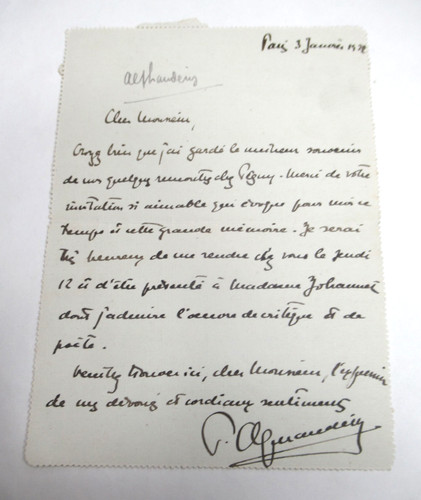 Paris 3 Janvier
Alphandéry
Cher Monsieur,
Croyez bien que j'ai gardé le meilleur souvenir
de nos quelques rencontres chez Péguy. Merci de votre
invitation si aimable qui évoque pour moi ce
temps et cette grande mémoire. Je serai
très heureux de me rendre chez vous le jeudi
12 et d'être présenté à Madame Johannet
dont j'admire l'œuvre de critique et de
poète.
Veuillez trouver ici, cher Monsieur, l'expression
de mes dévoués et cordiaux sentiments
P. Alphandéry